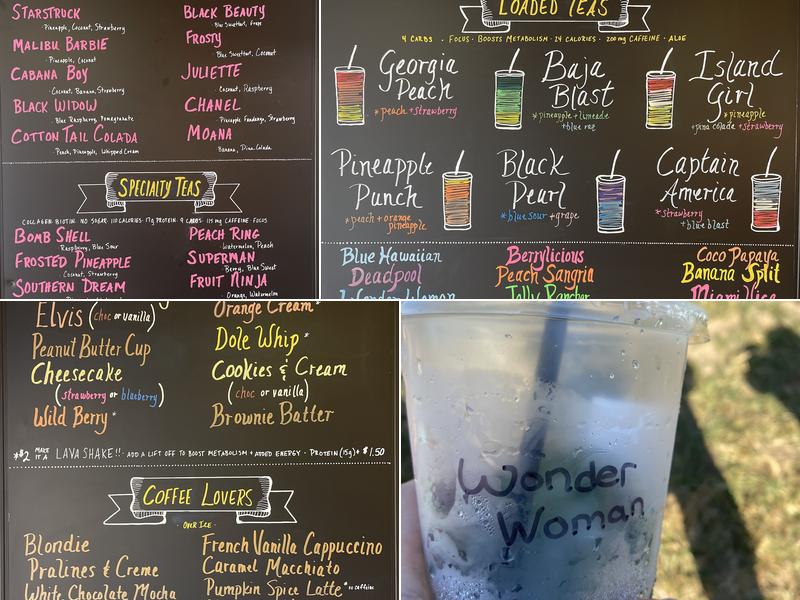 STARSTRUCK
Pineapple, Coconut, Strawberry
MALIBU BARBIE
Pineapple, Coconut
CABANA BOY
Coconut, Banana, Strawberry
BLACK WIDOW
Blue Raspberry, Pomegranate
COTTON TAIL COLADA
Peach, Pineapple, Whipped Cream
BLACK BEAUTY
Blue Sweettart, Grape
FROSTY
Blue Sweettart, Coconut
JULIETTE
Coconut, Raspberry
CHANEL
Pineapple Fandango, Strawberry
MOANA
Banana, Pina Colada
SPECIALTY TEAS
COLLAGEN · BIOTIN · NO SUGAR · 110 CALORIES · 17g PROTEIN · 9 CARBS · 115 mg CAFFEINE · FOCUS
BOMB SHELL
Raspberry, Blue Sour
FROSTED PINEAPPLE
Coconut, Strawberry
SOUTHERN DREAM
PEACH RING
Watermelon, Peach
SUPERMAN
Berry, Blue Sweet
FRUIT NINJA
Orange, Watermelon
LOADED TEAS
4 CARBS · FOCUS · BOOSTS METABOLISM · 24 CALORIES · 200 mg CAFFEINE · ALOE
Georgia
Peach
*peach + strawberry
Baja
Blast
*pineapple + limeade
+ blue raz
Island
Girl
*pineapple
+ pina colade + strawberry
Pineapple
Punch
*peach + orange
pineapple
Black
Pearl
*blue sour + grape
Captain
America
*strawberry
+ blue blast
Blue Hawaiian
Deadpool
Wonder Woman
Berrylicious
Peach Sangria
Jolly Rancher
Coco Papaya
Banana Split
Miami Vice
Elvis (choc or vanilla)
Peanut Butter Cup
Cheesecake
(strawberry or blueberry)
Wild Berry *
Orange Cream *
Dole Whip *
Cookies & Cream
(choc or vanilla)
Brownie Batter
*$2 MAKE IT A LAVA SHAKE!! · ADD A LIFT OFF TO BOOST METABOLISM + ADDED ENERGY · PROTEIN (15g) + $1.50
COFFEE LOVERS
· OVER ICE ·
Blondie
Pralines & Creme
White Chocolate Mocha
French Vanilla Cappuccino
Caramel Macchiato
Pumpkin Spice Latte *no caffeine
Wonder
Woman